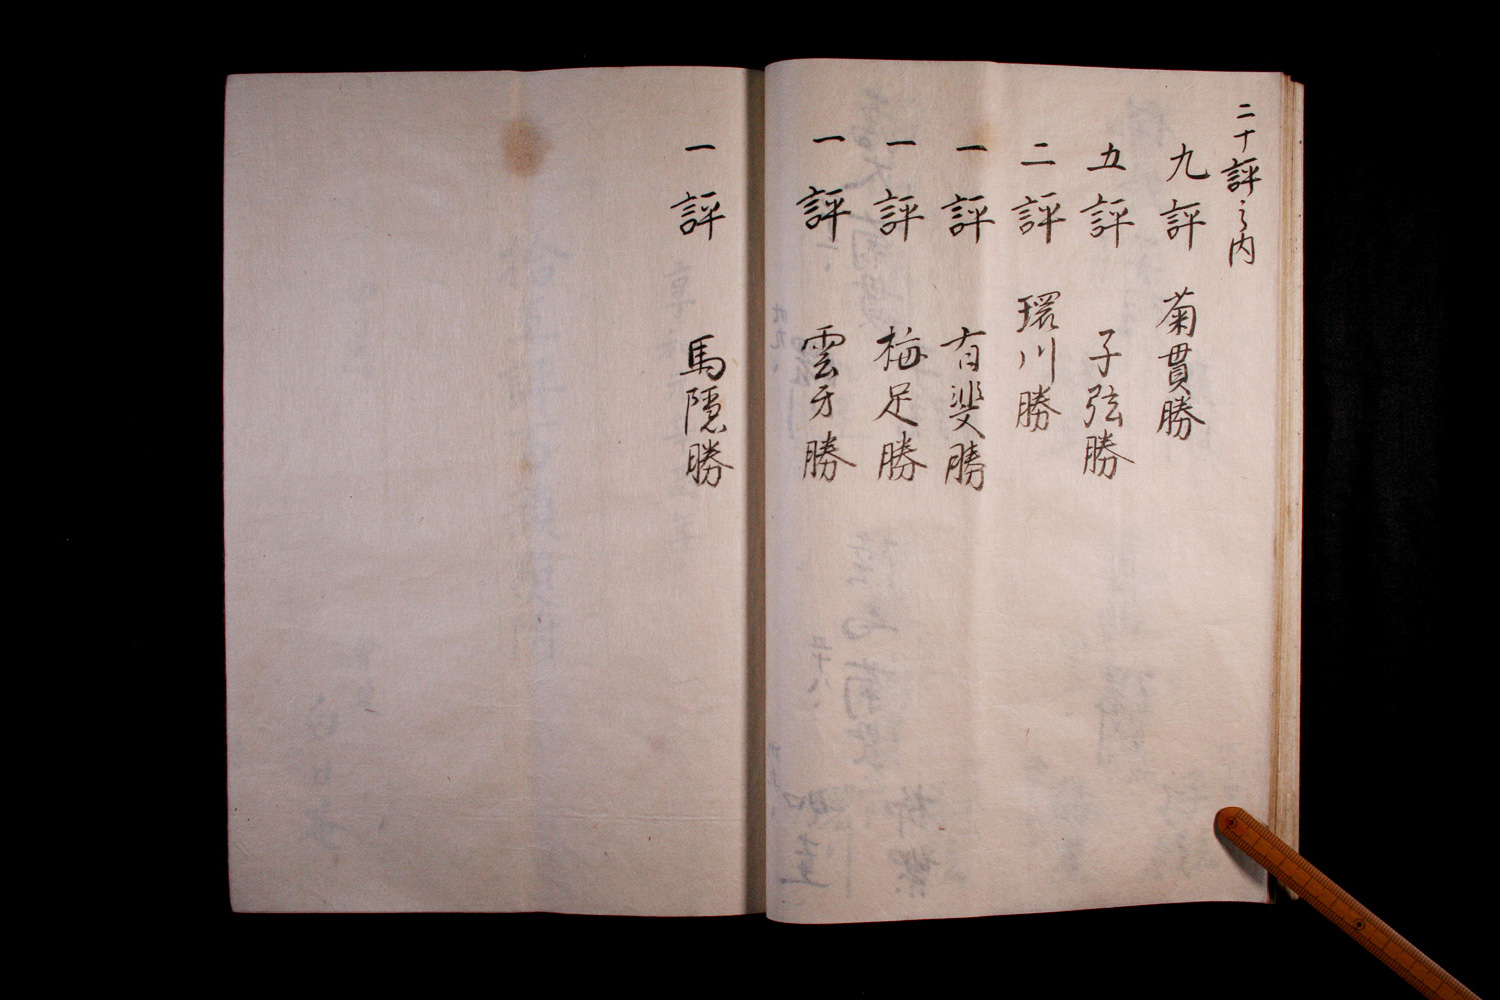 二十評之内
九評 菊貫勝
五評 子弦勝
二評 環川勝
一評 有斐勝
一評 梅足勝
一評 雲牙勝
一評 馬隠勝